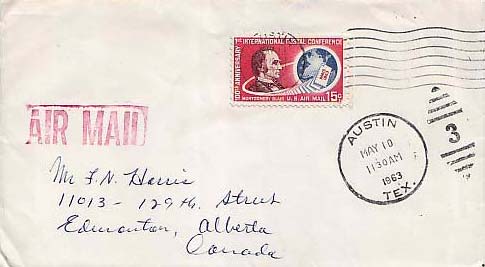 100TH ANNIVERSARY 1ST INTERNATIONAL POSTAL CONFERENCE
MONTGOMERY BLAIR U.S. AIR MAIL 15¢
AIR MAIL
AUSTIN
MAY 10
1130AM
1963
TEX.
3
Mr F. N. Harris
11013 - 129 th. Street
Edmonton, Alberta
Canada